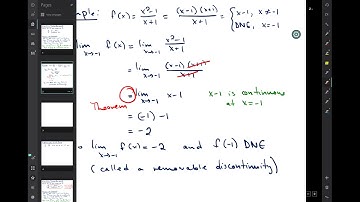 mple: f(x) = x²-1 / x+1 = (x-1)(x+1) / x+1 = { x-1, x≠-1
DNE, x=-1
lim x→-1 f(x) = lim x→-1 x²-1 / x+1
= lim x→-1 (x-1)(x+1) / x+1
= lim x→-1 x-1 x-1 is continuous at x=-1
Theorem
= (-1) -1
= -2
lim x→-1 f(x) = -2 and f(-1) DNE
(called a removable discontinuity)